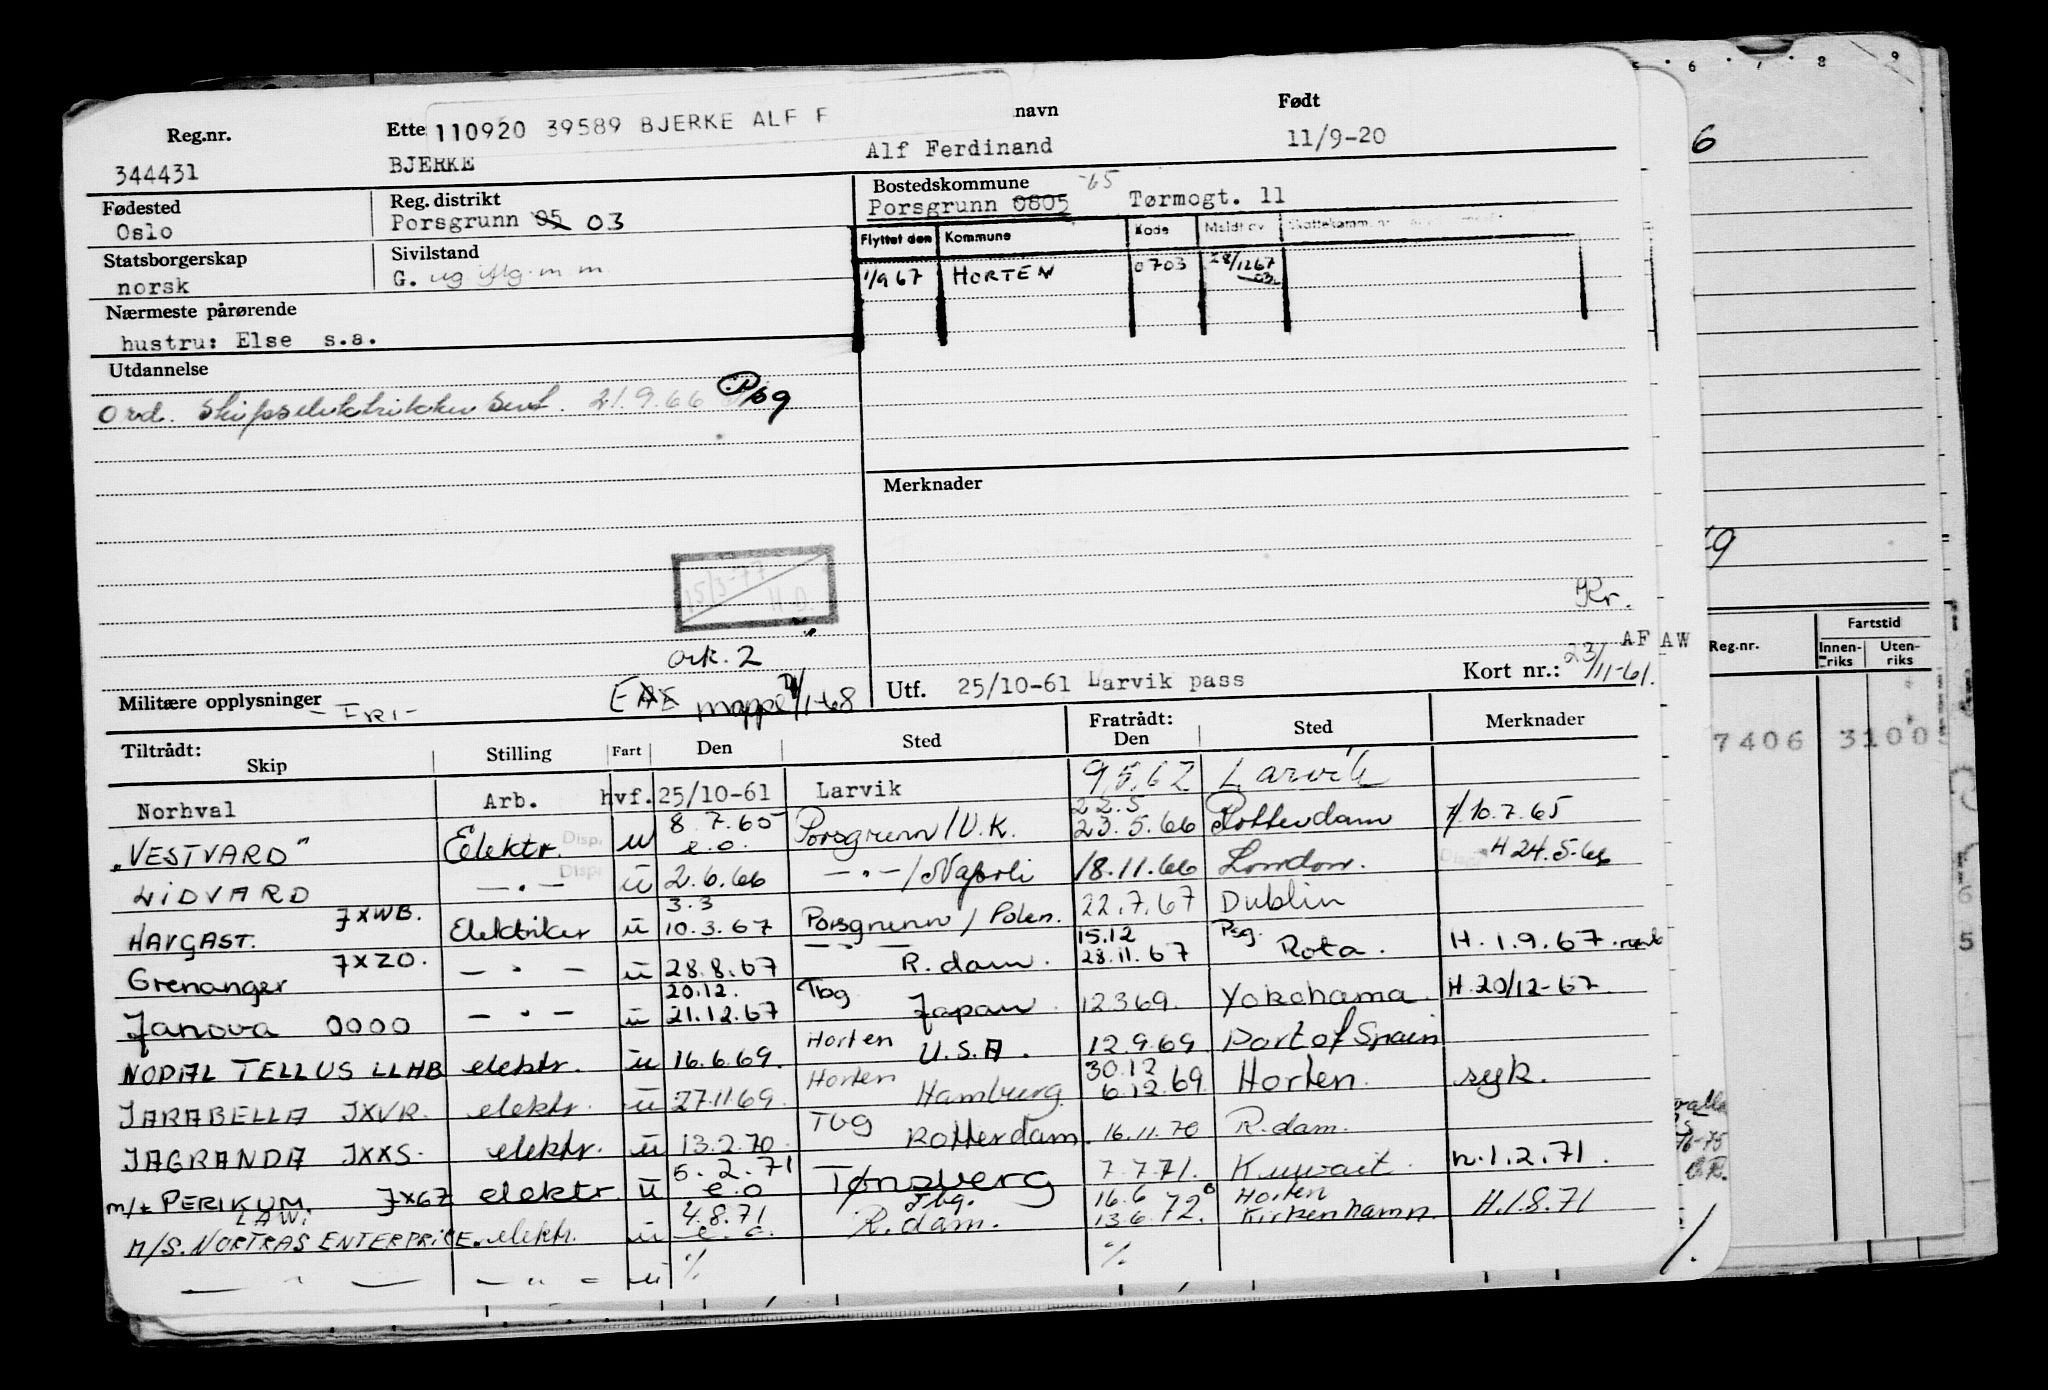 Reg.nr. Ette 110920 39589 BJERKE ALF F navn Født
344431 BJERKE Alf Ferdinand 11/9-20
Fødested Reg. distrikt Bostedskommune -65
Oslo Porsgrunn 05 03 Porsgrunn 0805 Tørmogt. 11
Statsborgerskap Sivilstand Flyttet den Kommune Kode Meldt av
norsk G. ug m m 1/9 67 HORTEN 0703 28/1267
Nærmeste pårørende
hustru: Else s.a.
Utdannelse
Ord. Skipselektriker sert. 21.9.66 Psg
Merknader
15/3-77 H.D.
Kr.
ark. 2
AF AW
Militære opplysninger - FRI - mappe 1/1-68 Utf. 25/10-61 Larvik pass Kort nr.: 23/11-61.
Tiltrådt: Fratrådt:
Skip Stilling Fart Den Sted Den Sted Merknader
Norhval Arb. hvf. 25/10-61 Larvik 9.5.62 Larvik
"VESTVARD" Elektr. u 8.7.65 e.o. Porsgrunn/U.K. 22.5 23.5.66 Rotterdam 7/10.7.65
LIDVARD - " - u 2.6.66 - " - /Napoli 18.11.66 London. H 24.5.66
HAVGAST. JXWB. Elektriker u 3.3 10.3.67 Porsgrunn / Polen. 22.7.67 Dublin
Grenanger JXZO. - " - u 28.8.67 - " - R.dam. 15.12 28.11.67 Psg. Rota. H.1.9.67.
Janova 0000 - " - u 20.12. 21.12.67 Tbg Japan 12369. Yokohama. H.20/12-67.
NODAL TELLUS LLHB elektr. u 16.6.69. Horten U.S.A. 12.9.69 Port of Spain
JARABELLA JXVR. elektr. u 27.11.69. Horten Hamburg. 30.12 6.12.69 Horten. syk.
JAGRANDA JXXS. elektr. u 13.2.70. Tbg Rotterdam. 16.11.70 R.dam.
m/t PERIKUM. JXGZ elektr. u 5.2.71 e.o Tønsberg 7.7.71. Kuwait. n.1.2.71.
M/S. NORTRAS ENTERPRISE. LAWI elektr. u 4.8.71 e.o. Tbg. R.dam. 16.6 13.6.72. Horten Kirkenhamn. H.1.8.71
— " — - " - u % %
5 6 7 8 9
6
19
Reg.nr. Fartstid
Innen-riks Uten-riks
7406 3100
76-75
6
5